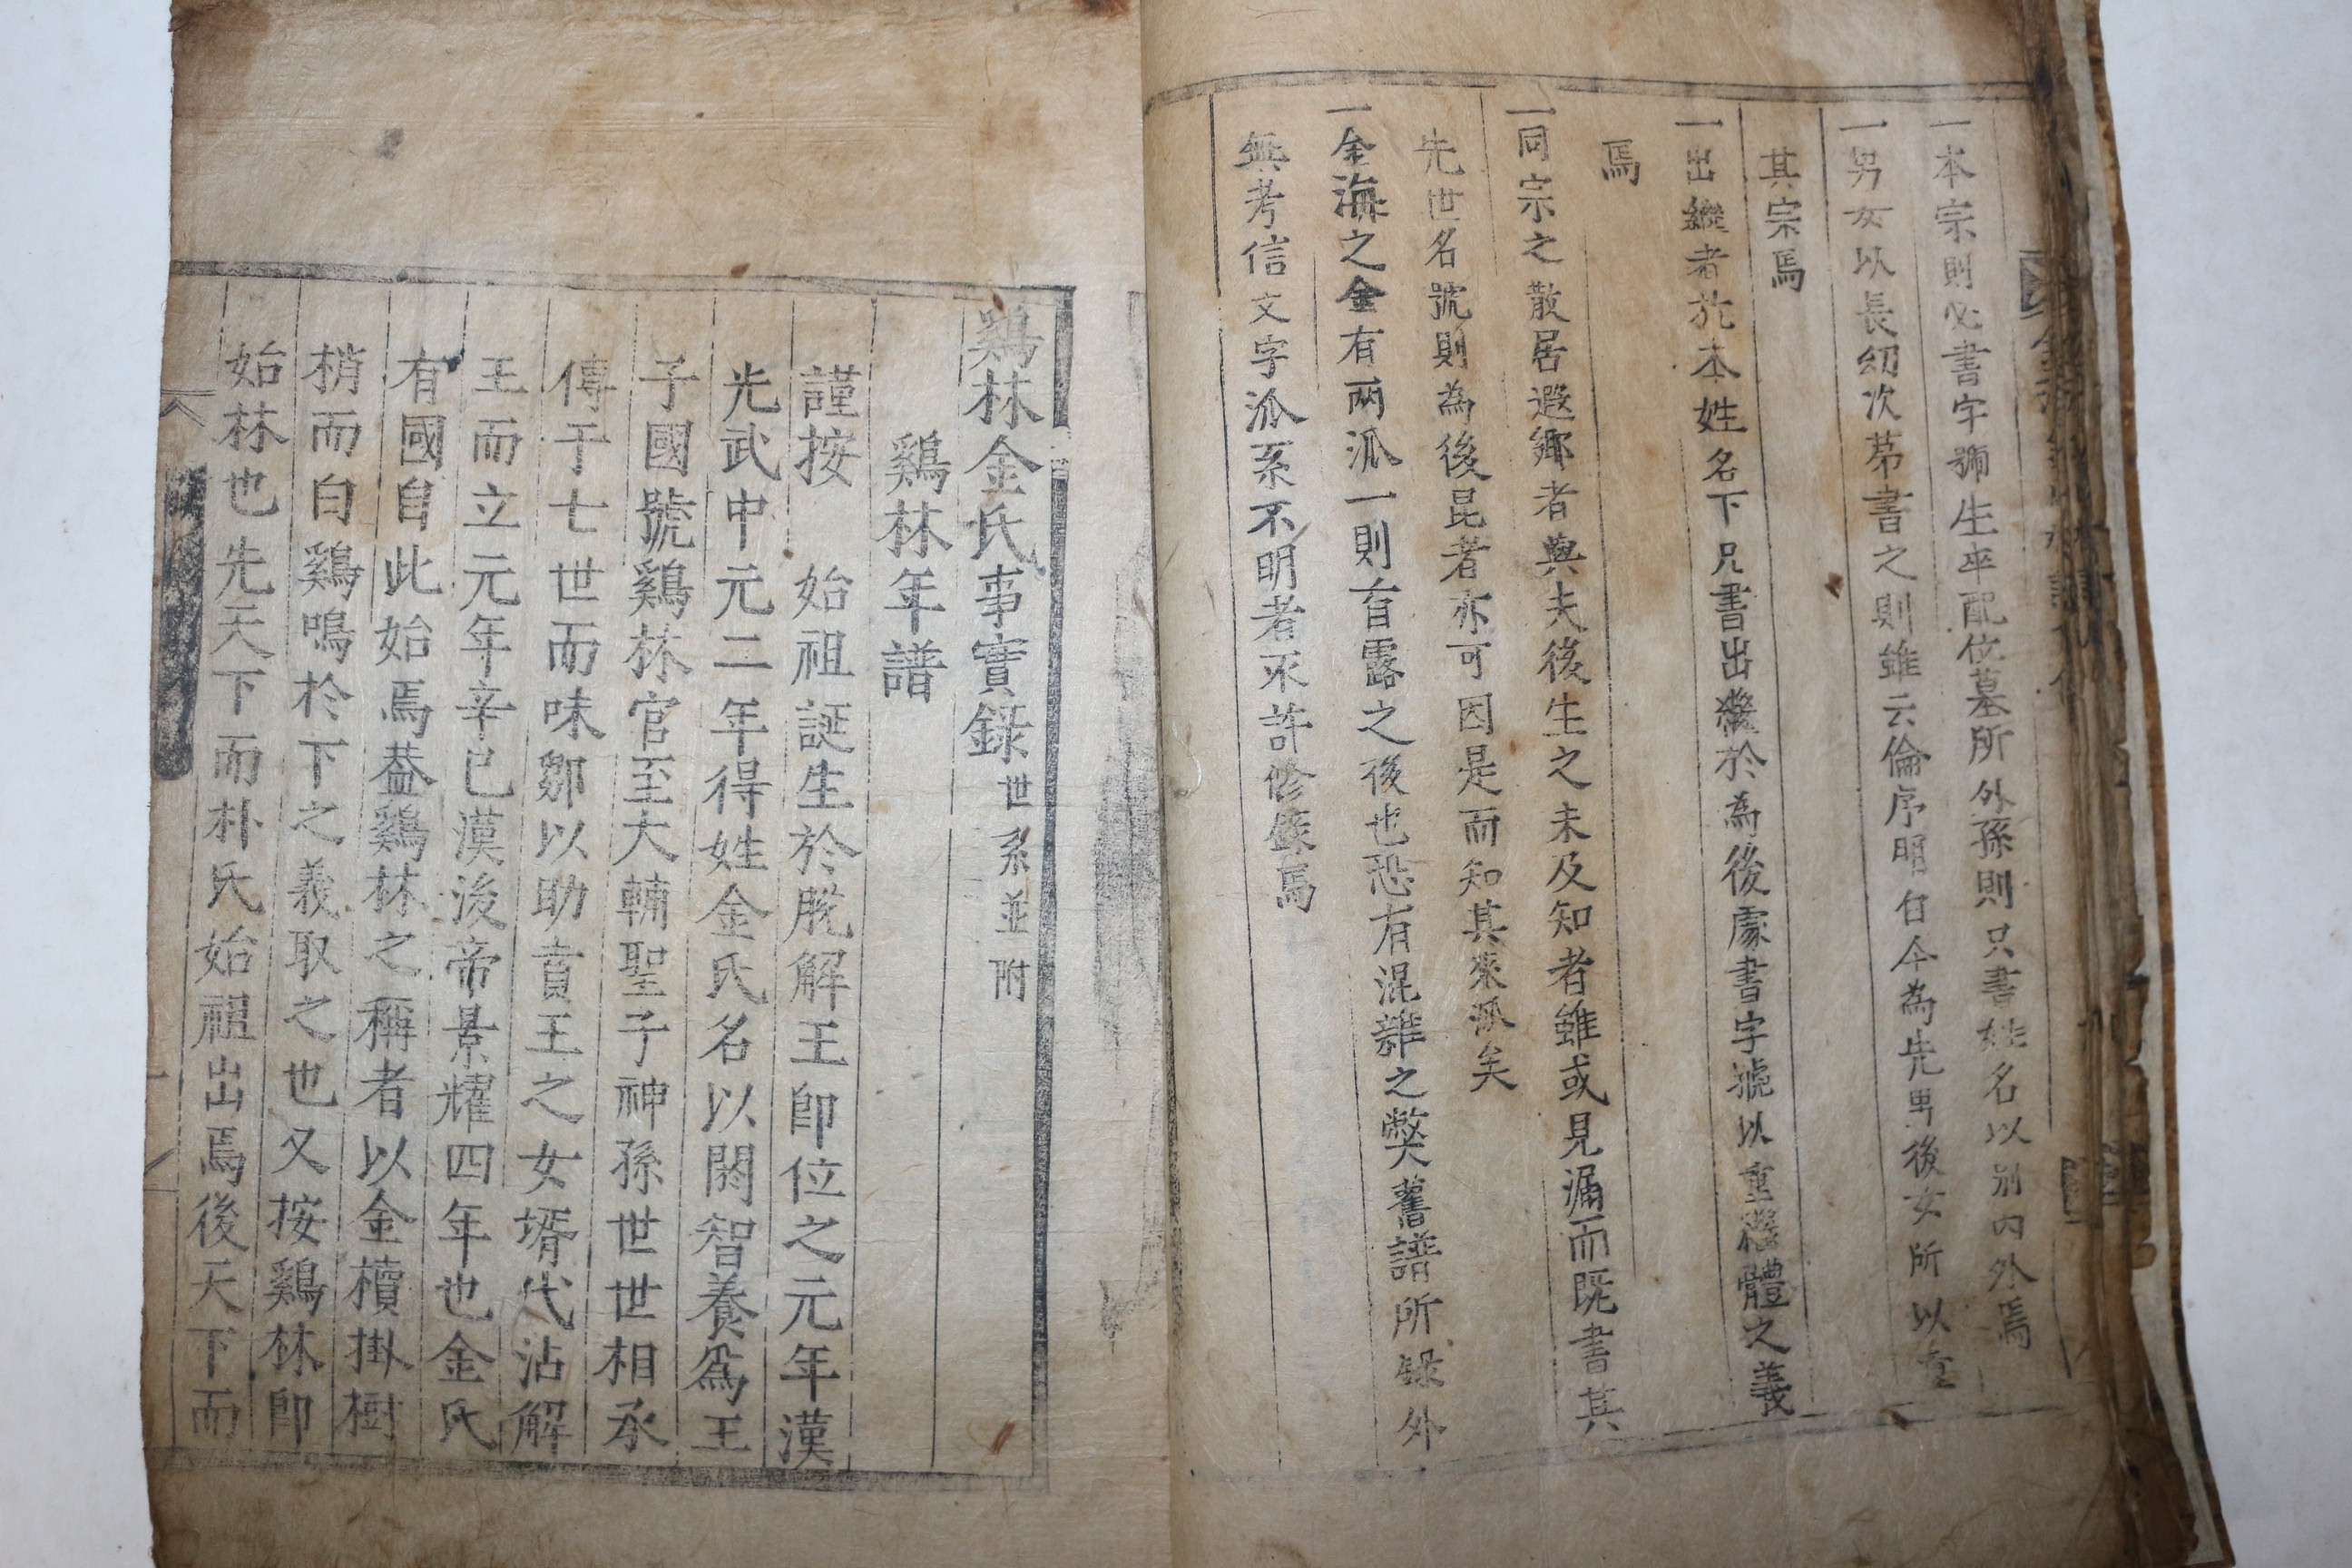 一本宗則必書字號生卒配位墓所外孫則只書姓名以別內外焉
一男女以長幼次第書之則雖云倫序明白今為先男後女所以重
其宗焉
一出繼者於本姓名下只書出繼於為後處書字號以重繼體之義
焉
一同宗之散居遐鄉者與夫後生之未及知者雖或見漏而既書其
先世名號則為後昆者亦可因是而知其來派矣
一金海之金有兩派一則首露之後也恐有混雜之弊舊譜所錄外
無考信文字派系不明者不許修錄焉
鷄林金氏事實錄世系並附
鷄林年譜
謹按 始祖誕生於脫解王卽位之元年漢
光武中元二年得姓金氏名以閼智養爲王
子國號鷄林官至大輔聖子神孫世世相承
傳于七世而味鄒以助賁王之女壻代沾解
王而立元年辛巳漢後帝景耀四年也金氏
有國自此始焉葢鷄林之稱者以金櫝掛樹
梢而白鷄鳴於下之義取之也又按鷄林卽
始林也先天下而朴氏始祖出焉後天下而